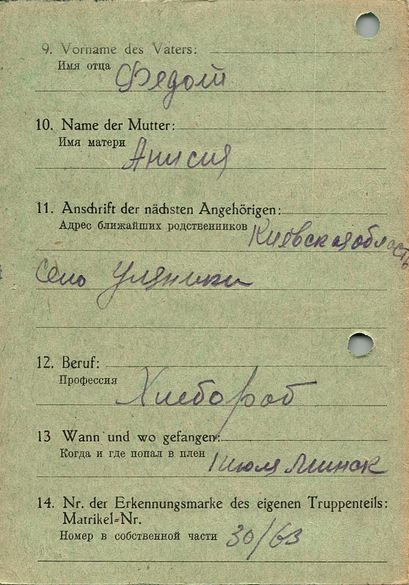 9. Vorname des Vaters:
Имя отца Федот
10. Name der Mutter:
Имя матери Анисия
11. Anschrift der nächsten Angehörigen:
Адрес ближайших родственников Киевская область
село Уляники
12. Beruf:
Профессия Хлебороб
13 Wann und wo gefangen:
Когда и где попал в плен июля Минск
14. Nr. der Erkennungsmarke des eigenen Truppenteils:
Matrikel-Nr.
Номер в собственной части 30/63